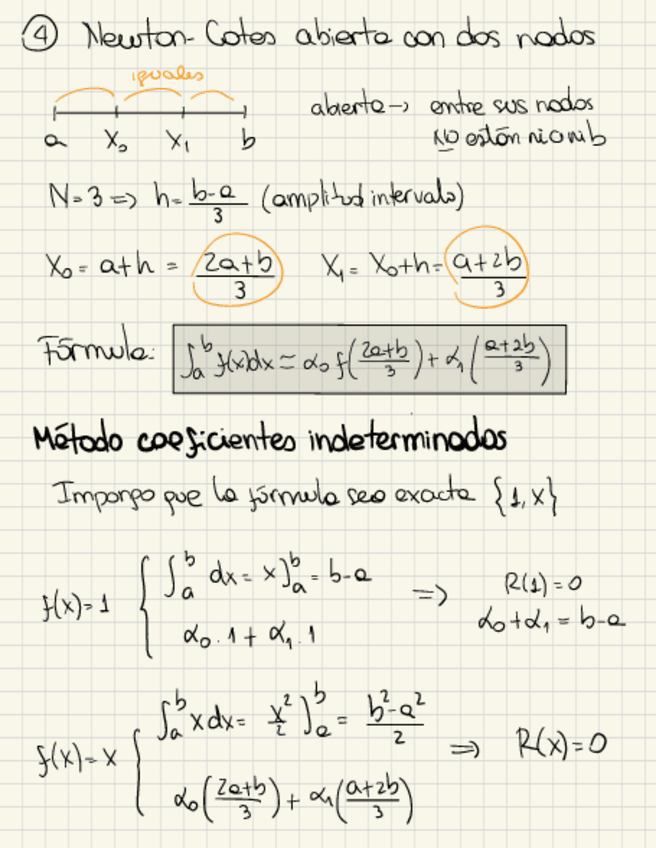 ④ Newton-Cotes abierta con dos nodos
iguales
a x₀ x₁ b
abierta → entre sus nodos
NO están ni a ni b
N=3 => h= (b-a)/3 (amplitud intervalo)
X₀ = a+h = (2a+b)/3 X₁ = X₀+h = (a+2b)/3
Fórmula: ∫ₐᵇ f(x)dx ≈ α₀ f((2a+b)/3) + α₁ ((a+2b)/3)
Método coeficientes indeterminados
Impongo que la fórmula sea exacta {1,x}
f(x)=1 { ∫ₐᵇ dx = x]ₐᵇ = b-a => R(1)=0
α₀·1 + α₁·1 α₀+α₁ = b-a
f(x)=x { ∫ₐᵇ x dx = x²/2 ]ₐᵇ = (b²-a²)/2 => R(x)=0
α₀((2a+b)/3) + α₁((a+2b)/3)